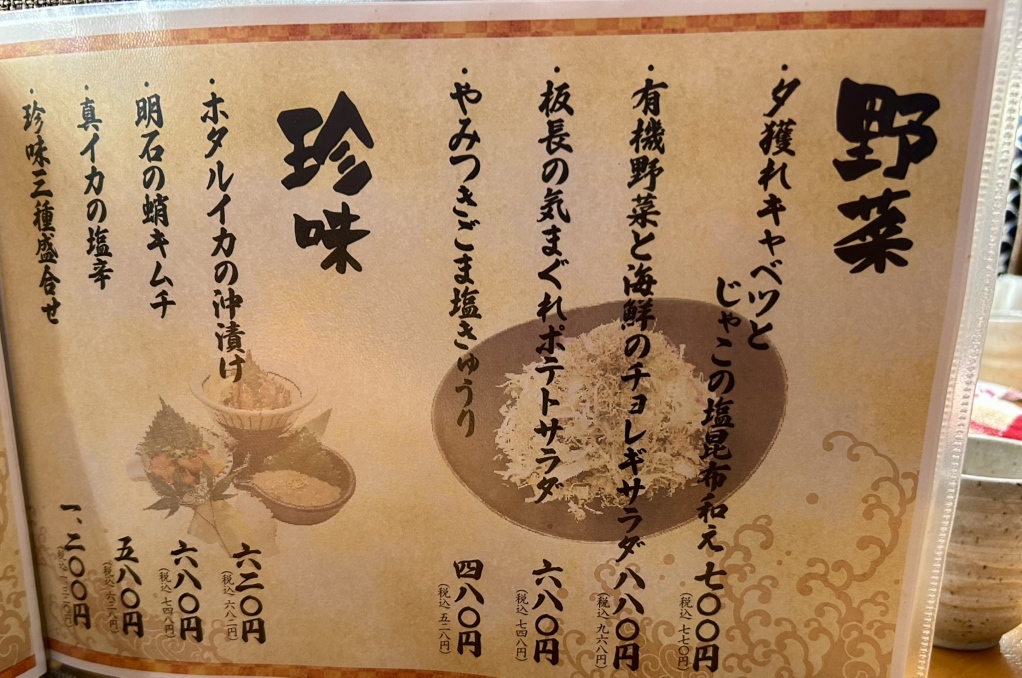 野菜
・夕獲れキャベツと
じゃこの塩昆布和え 七〇〇円
(税込 七七〇円)
・有機野菜と海鮮のチョレギサラダ 八八〇円
(税込 九六八円)
・板長の気まぐれポテトサラダ 六八〇円
(税込 七四八円)
・やみつきごま塩きゅうり 四八〇円
(税込 五二八円)
珍味
・ホタルイカの沖漬け 六二〇円
(税込 六八二円)
・明石の蛸キムチ 六八〇円
(税込 七四八円)
・真イカの塩辛 五八〇円
(税込 六三八円)
・珍味三種盛合せ 一、二〇〇円
(税込 一三二〇円)